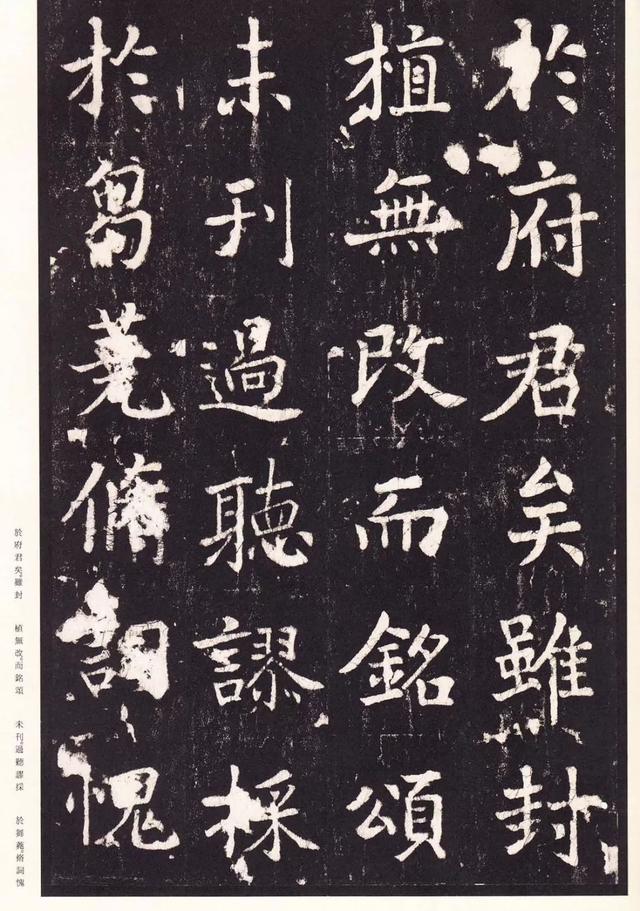 於府君矣雖封
植無改而銘頌
未刊過聽謬採
於芻蕘脩詞愧
於府君矣。雖封　植無改。而銘頌　未刊。過聽謬採　於芻蕘。脩詞愧